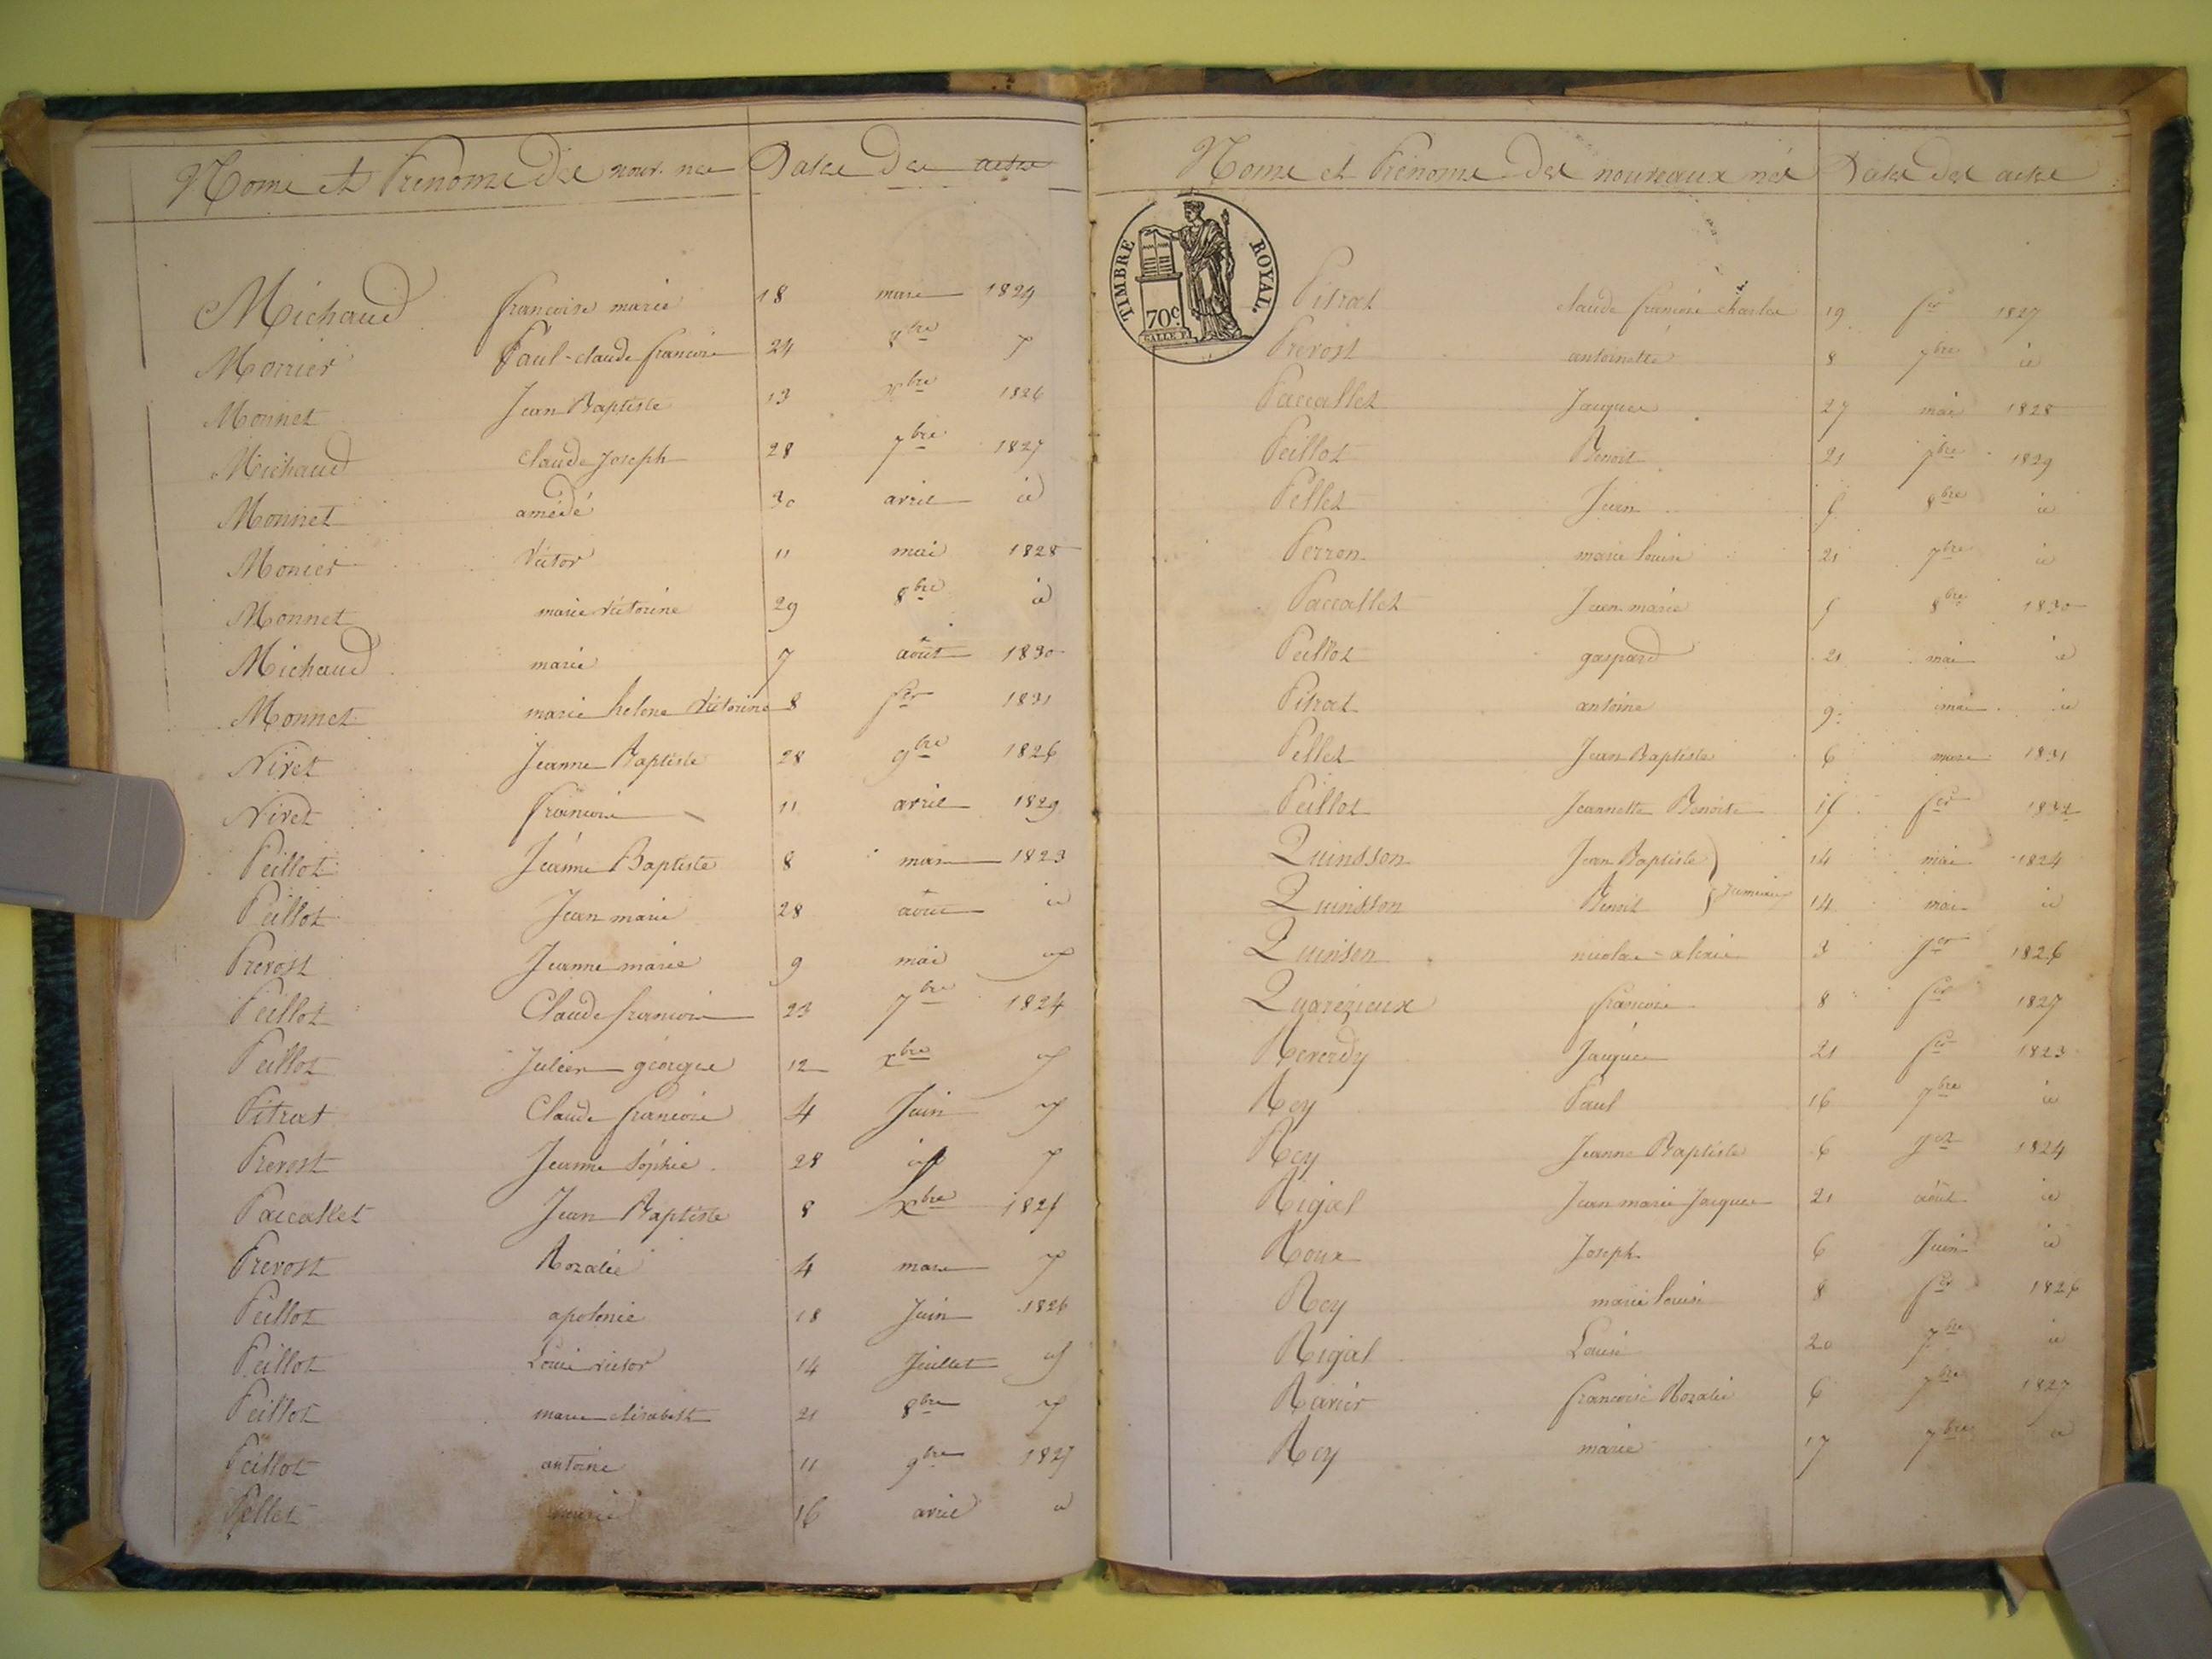 Noms et Prenoms des nouv. nes Dates des actes
Michaud francoise marie 18 mars 1824
Monier Paul-claude francois 24 8bre
Monnet Jean Baptiste 13 xbre 1826
Michaud claude Joseph 28 7bre 1827
Monnet amédé 30 avril id
Monier Victor 11 mai 1828
Monnet marie Victorine 29 8bre id
Michaud marie 7 août 1830
Monnet marie helene Victorine 8 fer 1831
Niret Jeanne Baptiste 28 9bre 1826
Niret francois 11 avril 1829
Peillot Jeanne Baptiste 8 mars 1823
Peillot Jean marie 28 aout id
Prevost Jeanne marie 9 mai id
Peillot Claude francois 23 7bre 1824
Peillot Julien george 12 xbre id
Pitrat Claude francois 4 Juin id
Prevost Jeanne Sophie 28 id id
Paccallet Jean Baptiste 8 xbre 1825
Prevost Rozalie 4 mars id
Peillot apolonie 18 Juin 1826
Peillot Louis victor 14 Juillet id
Peillot marie elisabeth 21 8bre id
Peillot antoine 11 9bre 1827
Pellet marie 16 avril id
Noms et Prénoms des nouveaux nés Dates des actes
TIMBRE ROYAL.
70c.
Pitrat claude francois Charles 19 fer 1827
Prevost antoinette 8 7bre id
Paccallet Jacques 27 mai 1828
Peillot Benoit 21 7bre 1829
Pellet Jean 5 8bre id
Perron marie louise 21 7bre id
Paccallet Jean marie 5 8bre 1830
Peillot gaspard 21 mai id
Pitrat antoine 9 mai id
Pellet Jean Baptiste 6 mars 1831
Peillot Jeannette Benoite 15 fer 1832
Quinsson Jean Baptiste 14 mai 1824
Quinsson Benoit Jumeaux 14 mai id
Quinson nicolas-alexis 3 Jer 1826
Quarezieux francois 8 fer 1827
Reverdy Jacques 21 fer 1823
Rey Paul 16 7bre id
Rey Jeanne Baptiste 6 Jer 1824
Rigal Jean marie Jacques 21 août id
Roux Joseph 6 Juin id
Rey marie louise 8 fer 1826
Rigal Louis 20 7bre id
Ravier francoise Rozalie 6 7bre 1827
Rey marie 17 7bre id